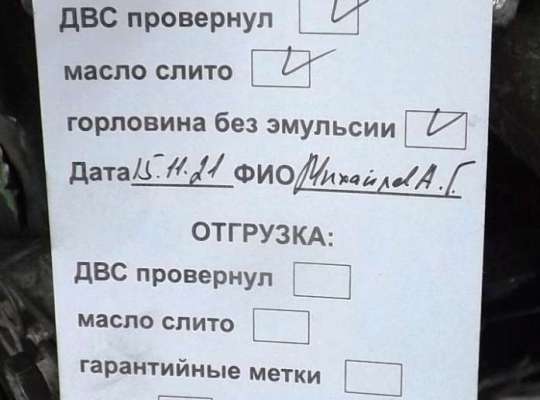 ДВС провернул
масло слито
горловина без эмульсии
Дата 15.11.21 ФИО Михайлов А.Г.
ОТГРУЗКА:
ДВС провернул
масло слито
гарантийные метки